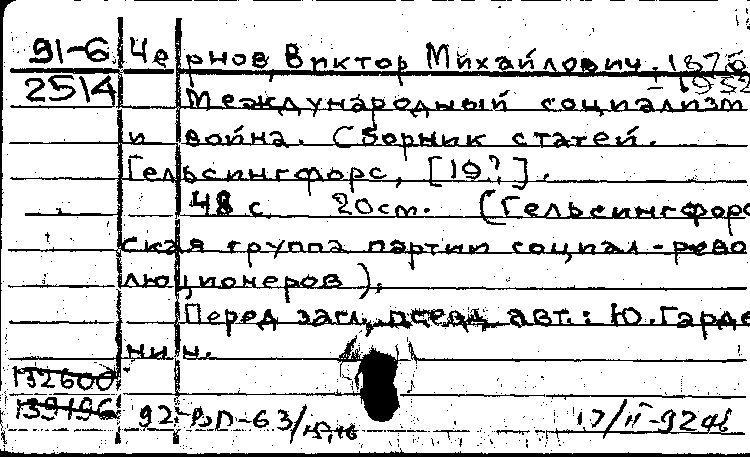 91-6 Чернов, Виктор Михайлович. 1876
2514 -1952
Международный социализм
и война. Сборник статей.
Гельсингфорс, [19?].
48 с. 20 cm. (Гельсингфорс
ская группа партии социал-рево
люционеров).
Перед загл. псевд. авт.: Ю. Гарде
нин.
132600
139196
92-ВП-63/15,16 17/II-92